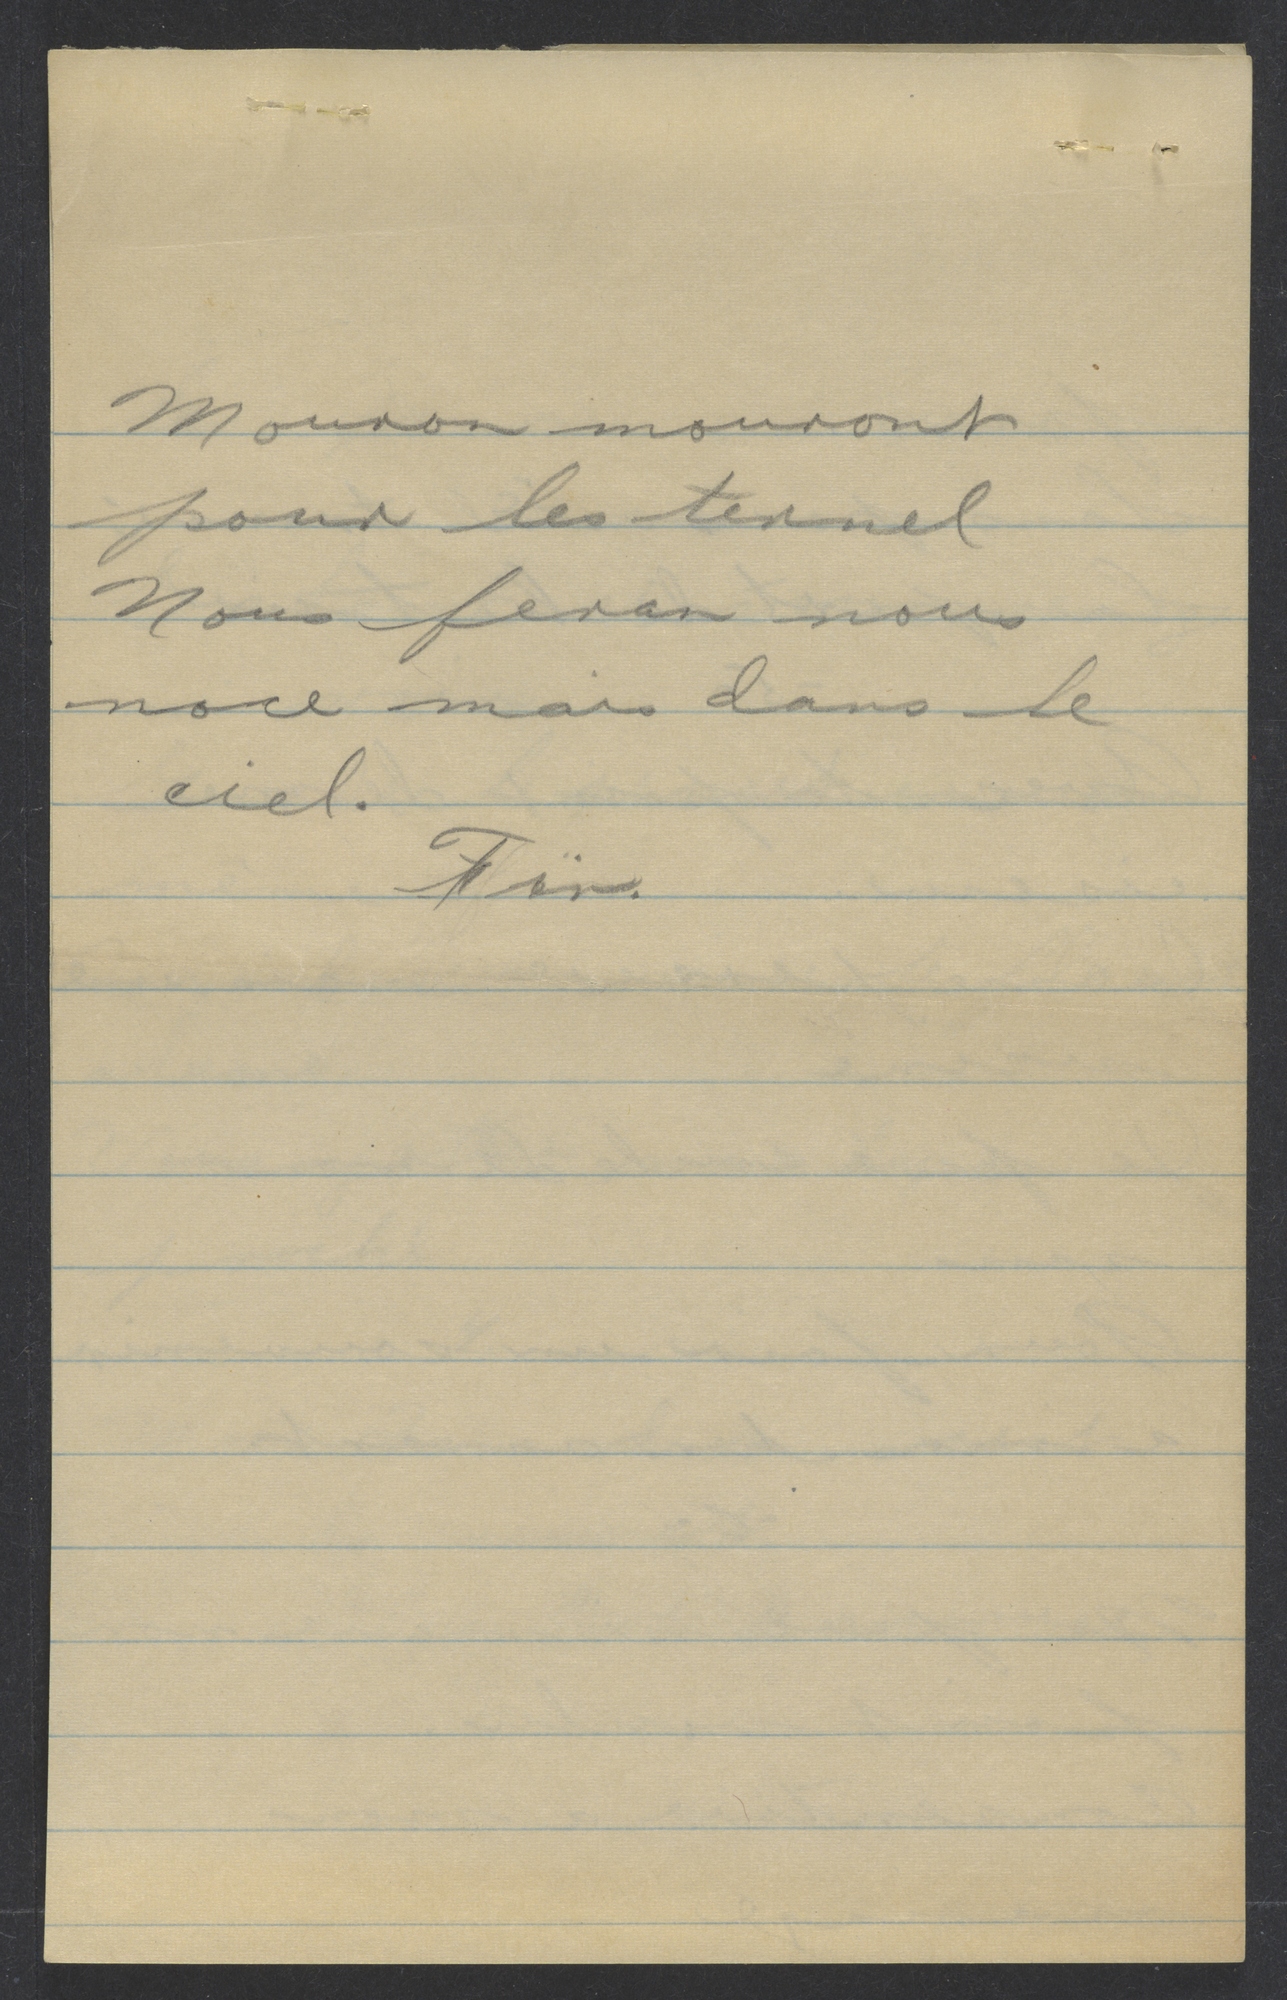 Mouron mouront
pour les ternel
Nous feran nous
noce mais dans le
ciel.
Fin.